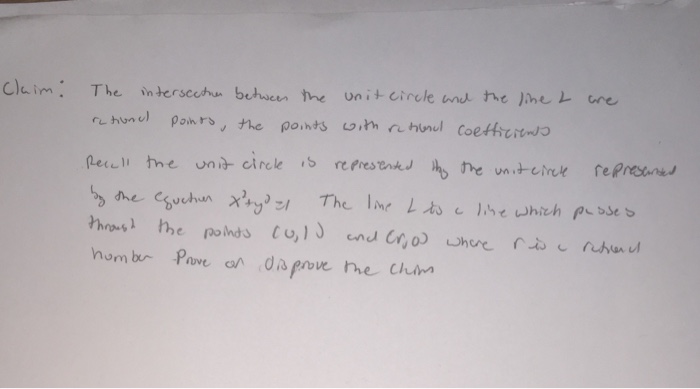 Claim: The intersection between the unit circle and the line L are
rational points, the points with rational coefficients
Recall the unit circle is represented by the unit circle represented
by the equation x²+y²=1 The line L is a line which passes
through the points (0,1) and (r,0) where r is a rational
number Prove or disprove the claim